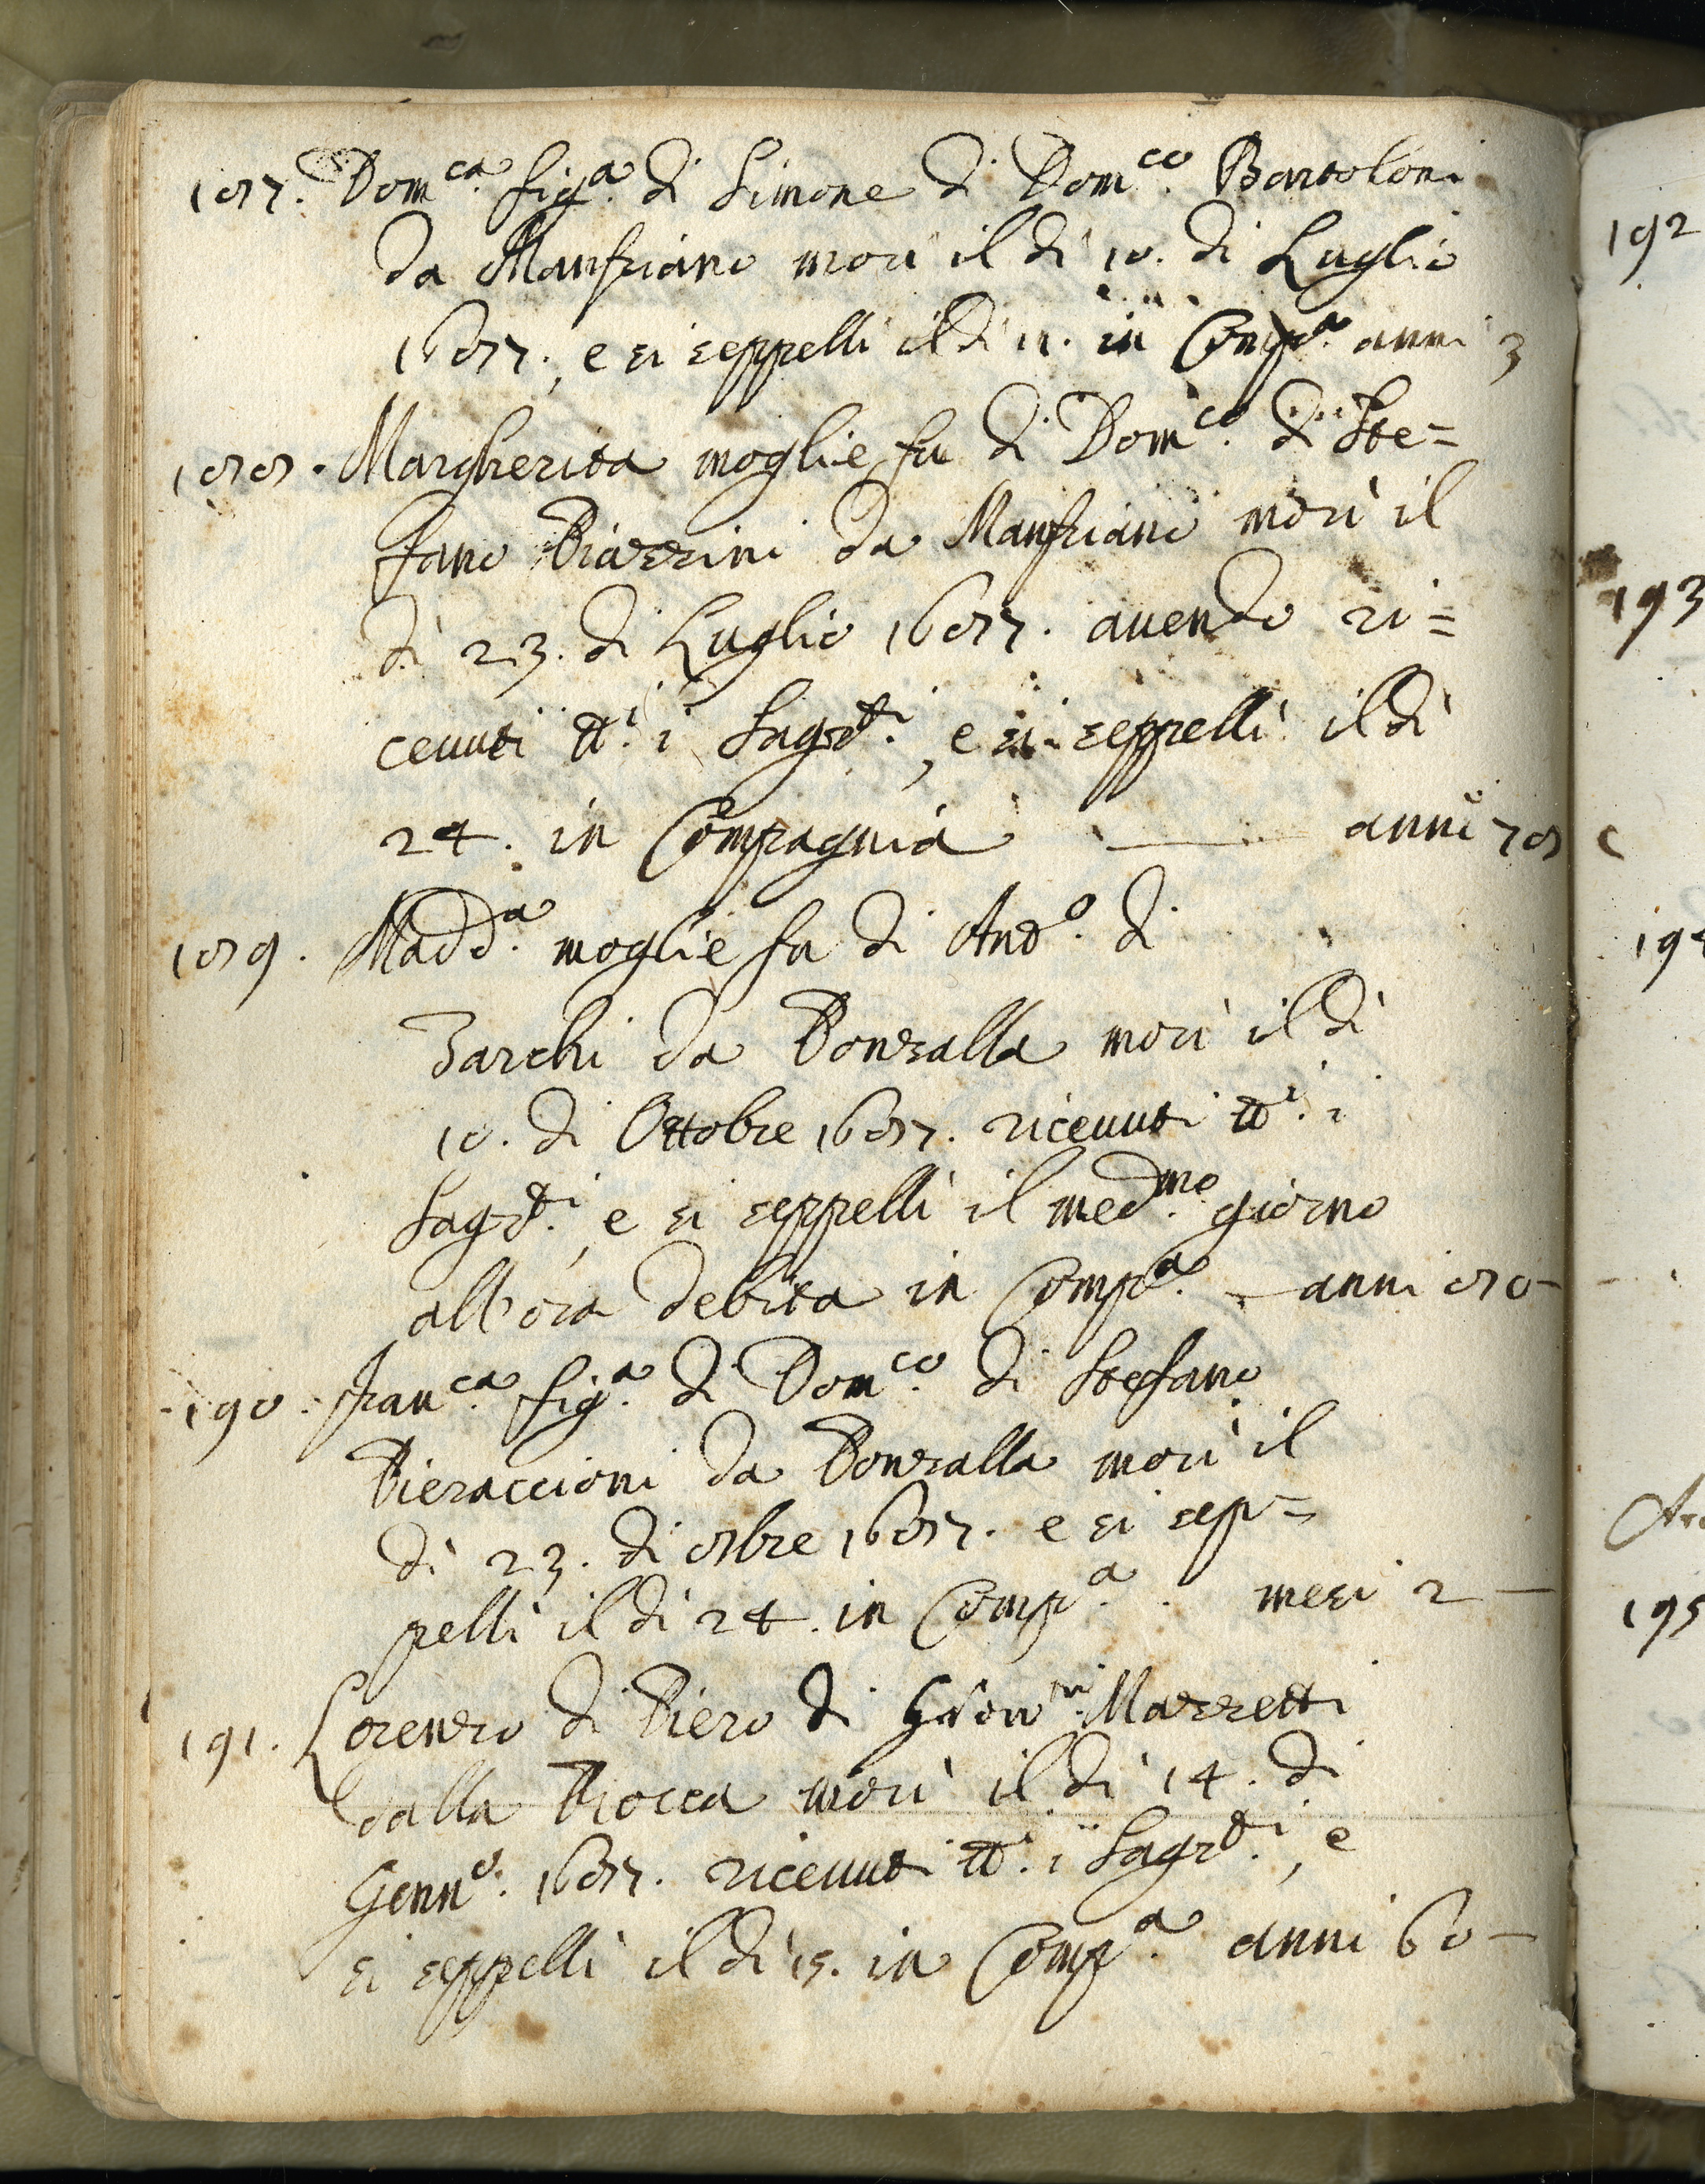 187. Dom.ca fig.a di Simone di Dom.co Bartoloni
da Manfriano morì il dì 10. di Luglio
1687., e si seppellì il dì 11. in Comp.a anni 3
188. Margherita moglie fu di Dom.co di Ste=
fano Piazzini da Manfriano morì il
dì 23. di Luglio 1687. avendo ri=
cevuti tt.i i Sagr.ti, e si seppellì il dì
24. in Compagnia —— anni 78
189. Madd.a moglie fu di Ant.o di
Zarchi da Bonzalla morì il dì
10. di Ottobre 1687. ricevuti tt.i i
Sagr.ti, e si seppellì il med.mo giorno
all'ora debita in Comp.a — anni 80 —
190. Fran.ca fig.a di Dom.co di Stefano
Pieraccioni da Bonzalla morì il
dì 23. di 8bre 1687. e si sep=
pellì il dì 24. in Comp.a . mesi 2 —
191. Lorenzo di Piero di Giov.ni Mazzetti
dalla Rocca morì il dì 14. di
Genn.o 1687. ricevuti tt.i i Sagr.ti, e
si seppellì il dì 15. in Comp.a anni 60 —
192
193
195